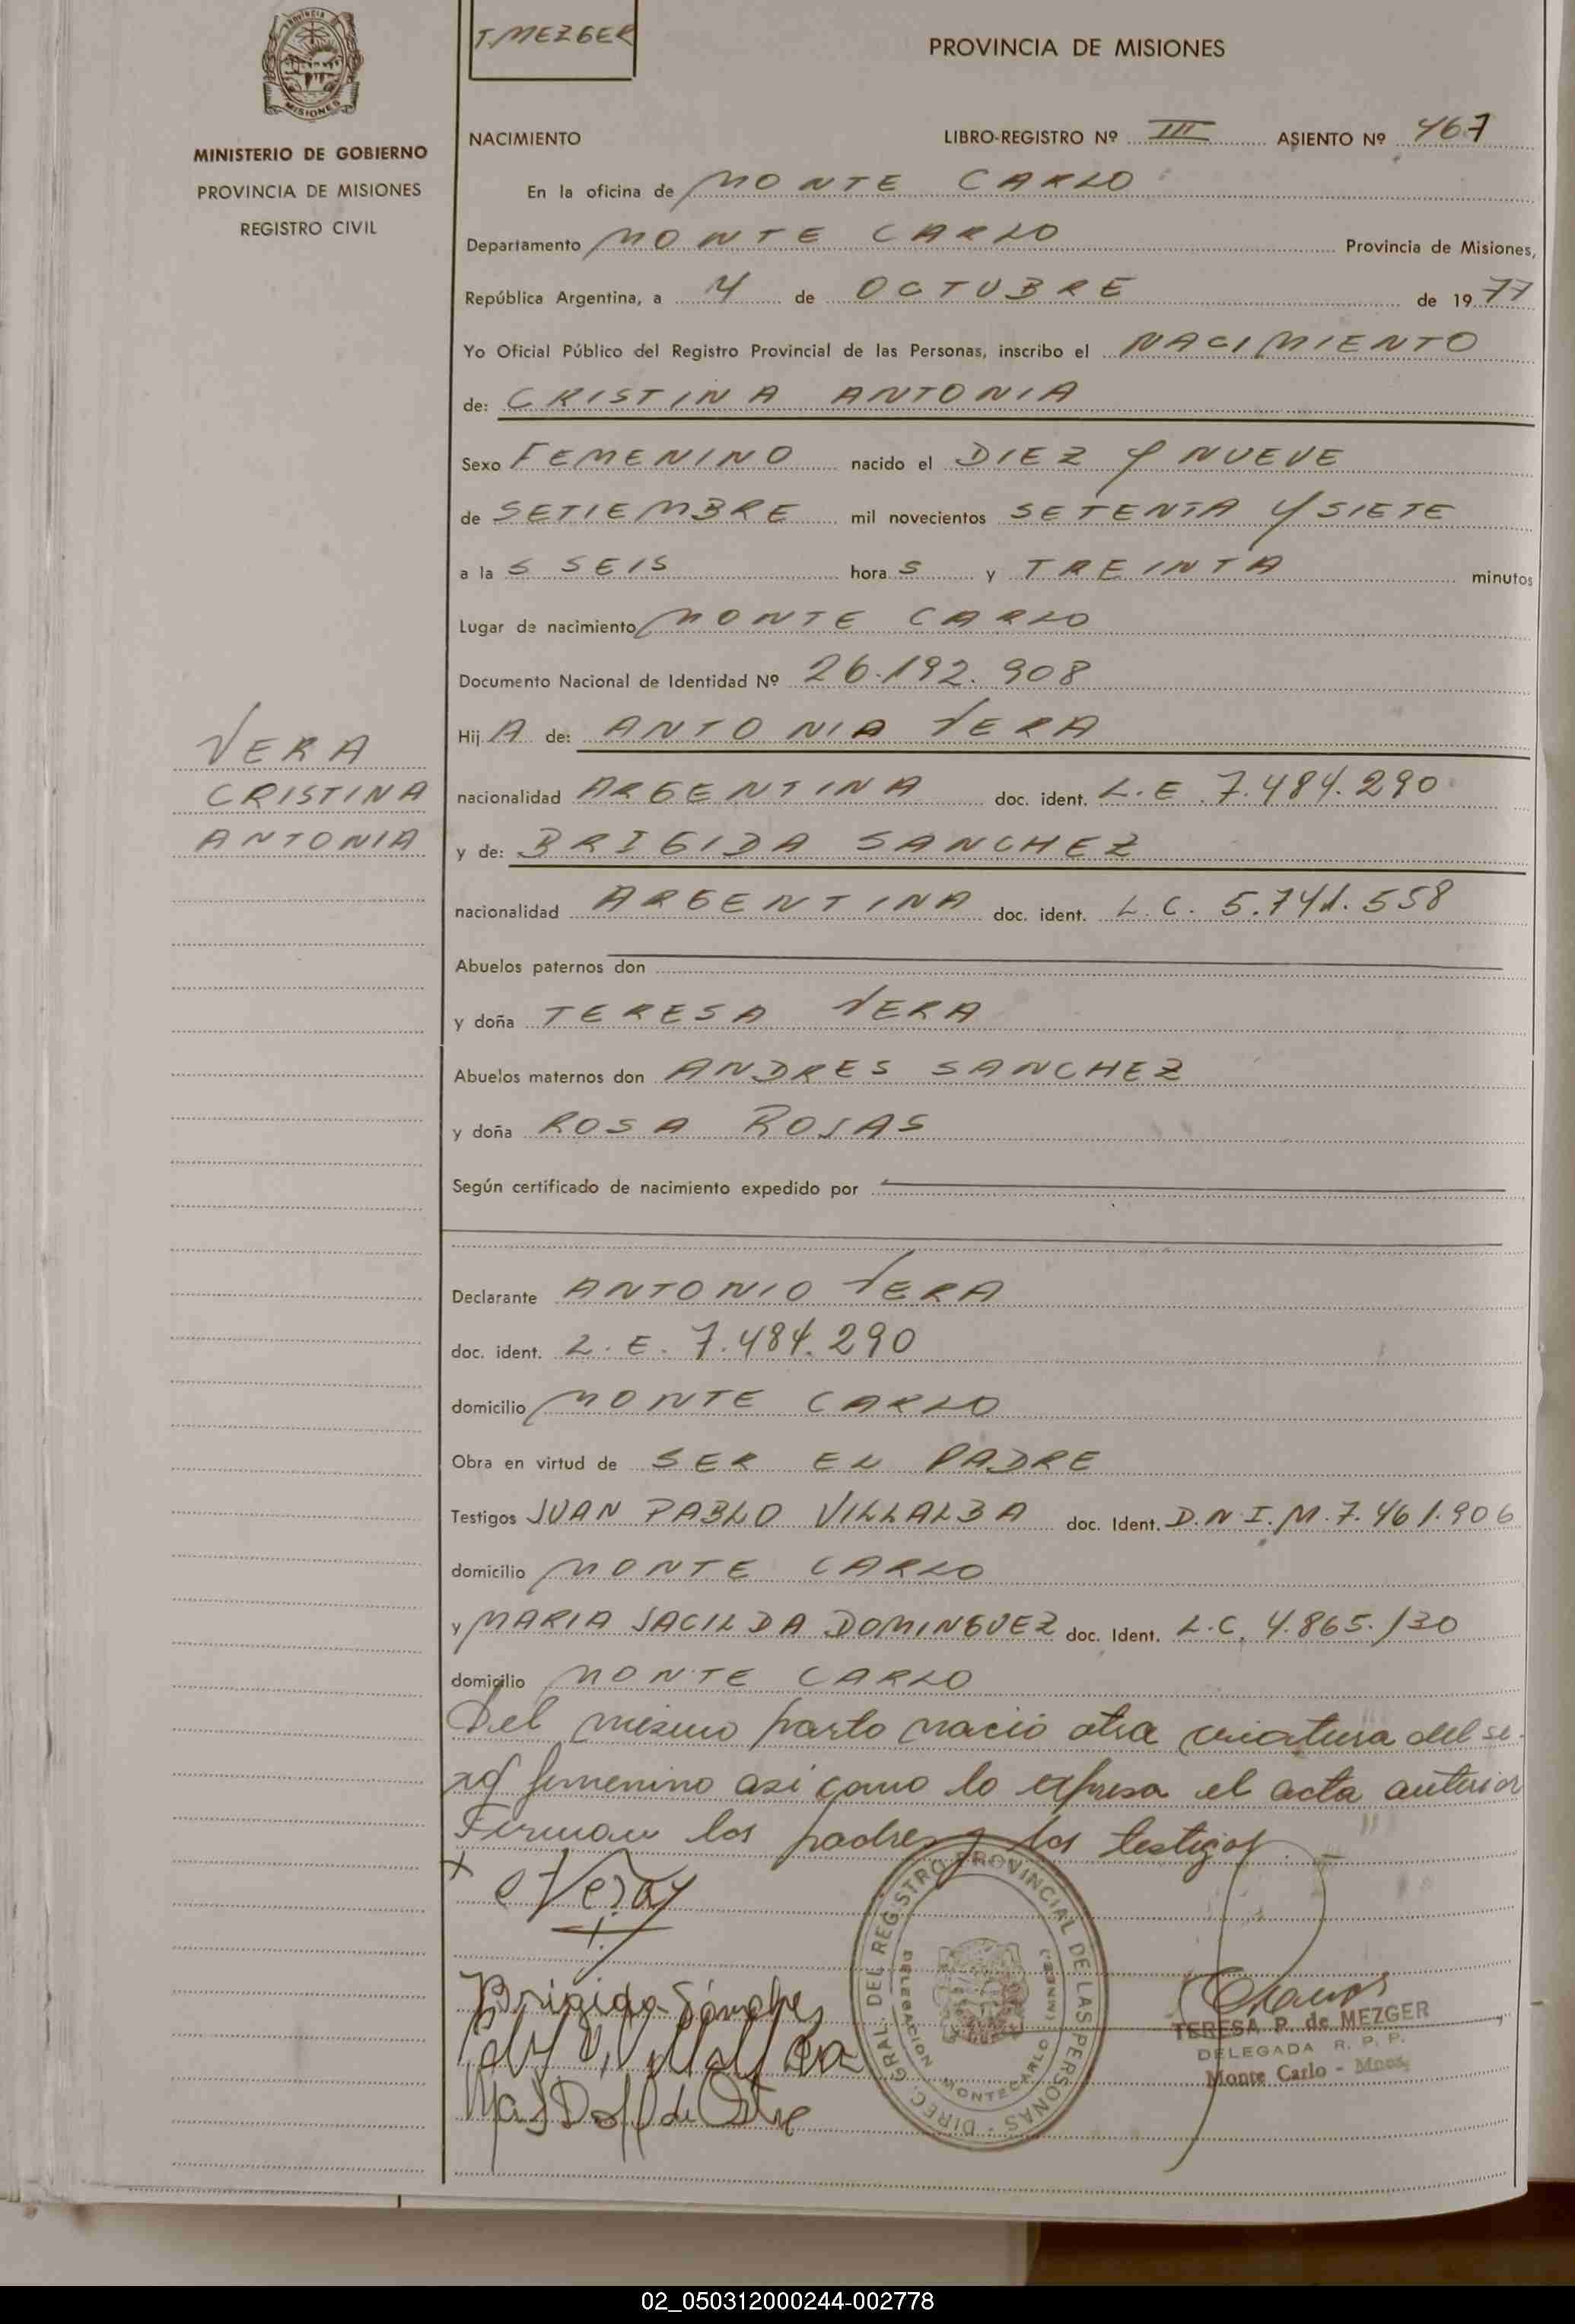 T. MEZGER
PROVINCIA DE MISIONES
MISIONES
MINISTERIO DE GOBIERNO
PROVINCIA DE MISIONES
REGISTRO CIVIL
NACIMIENTO LIBRO-REGISTRO Nº III ASIENTO Nº 467
En la oficina de MONTE CARLO
Departamento MONTE CARLO Provincia de Misiones,
República Argentina, a 4 de OCTUBRE de 1977
Yo Oficial Público del Registro Provincial de las Personas, inscribo el NACIMIENTO
de: CRISTINA ANTONIA
Sexo FEMENINO nacido el DIEZ Y NUEVE
de SETIEMBRE mil novecientos SETENTA Y SIETE
a la S SEIS hora S y TREINTA minutos
Lugar de nacimiento MONTE CARLO
Documento Nacional de Identidad Nº 26.192.908
Hij A de: ANTONIA VERA
VERA
CRISTINA
ANTONIA
nacionalidad ARGENTINA doc. ident. L.E. 7.484.290
y de: BRIGIDA SANCHEZ
nacionalidad ARGENTINA doc. ident. L.C. 5.741.558
Abuelos paternos don
y doña TERESA VERA
Abuelos maternos don ANDRES SANCHEZ
y doña ROSA ROJAS
Según certificado de nacimiento expedido por
Declarante ANTONIO VERA
doc. ident. L.E. 7.484.290
domicilio MONTE CARLO
Obra en virtud de SER EL PADRE
Testigos JUAN PABLO VILLALBA doc. Ident. D.N.I.M. 7.461.906
domicilio MONTE CARLO
y MARIA JACILDA DOMINGUEZ doc. Ident. L.C. 4.865.130
domicilio MONTE CARLO
Del mismo parto nació otra criatura del se-
xo femenino asi como lo expresa el acta anterior
Firman los padres y los testigos.
Vera
Brigida Sánchez
Villalba
DIREC. GRAL. DEL REGISTRO PROVINCIAL DE LAS PERSONAS
DELEGACION MONTECARLO (MISIONES)
TERESA P. de MEZGER
DELEGADA R. P. P.
Monte Carlo - Mnes.
02_050312000244-002778